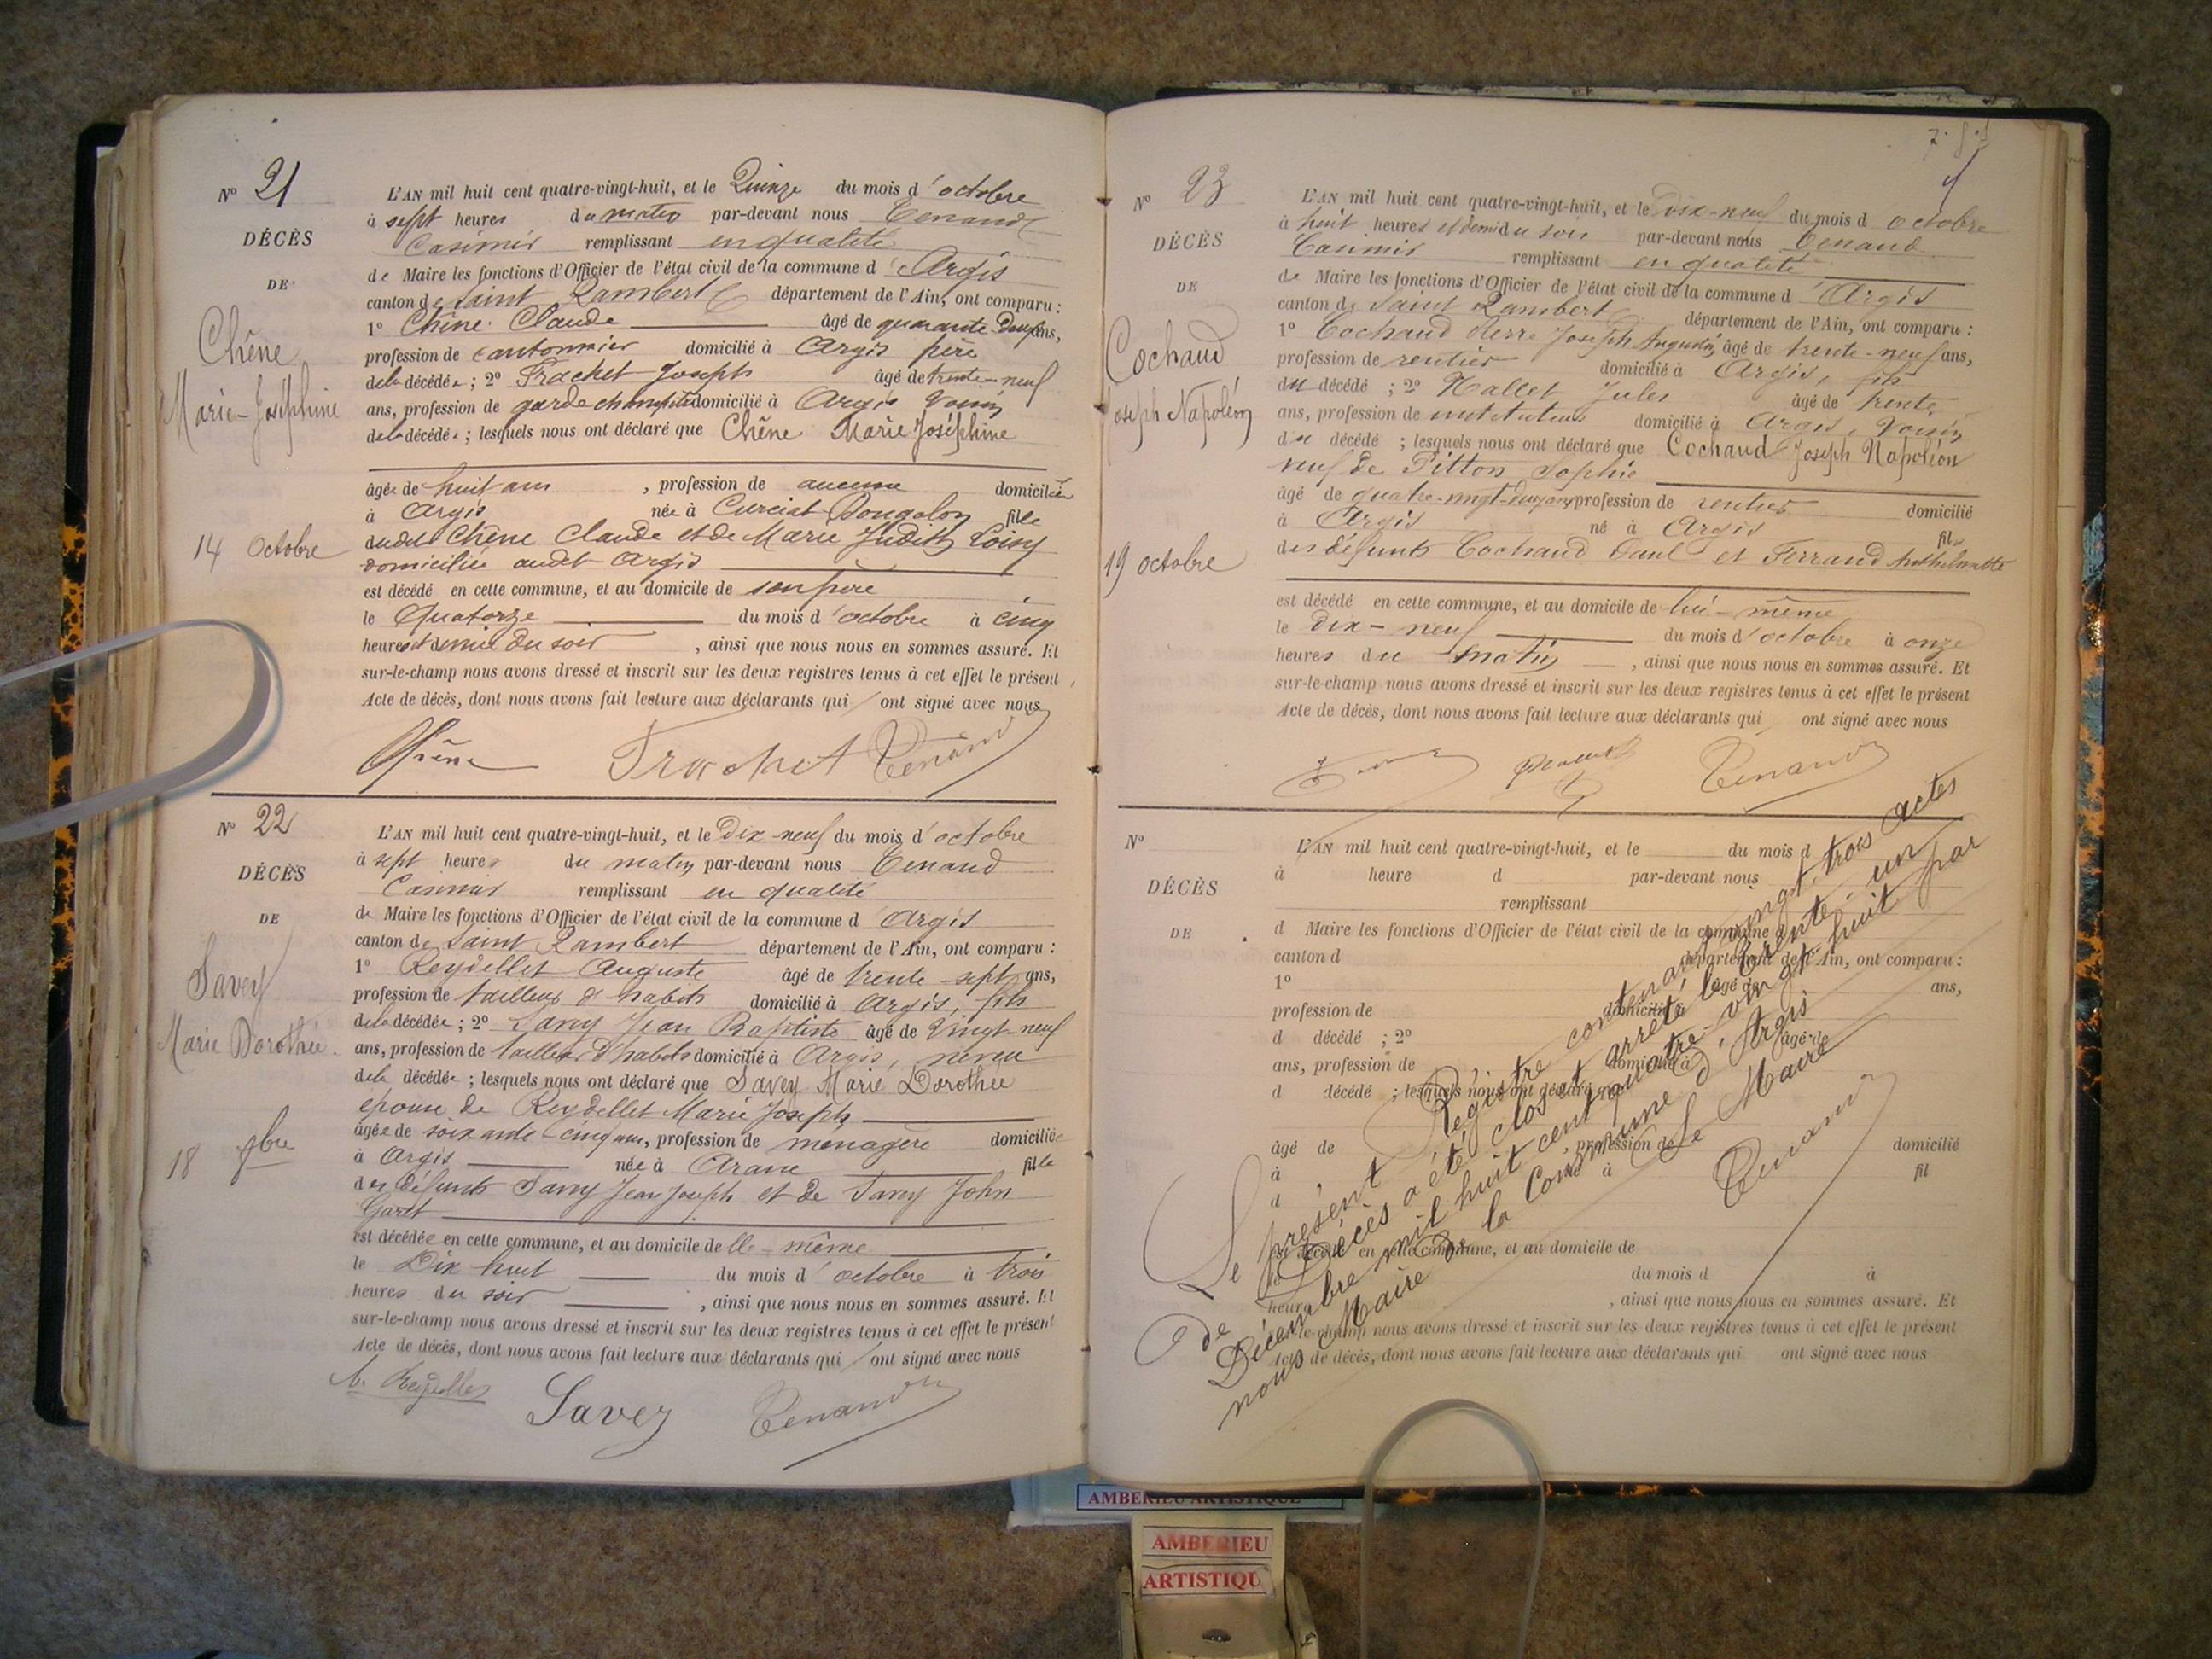 N° 21
DÉCÈS
DE
Chêne
Marie-Joséphine
14 Octobre
L'AN mil huit cent quatre-vingt-huit, et le Quinze du mois d'octobre
à sept heures du matin par-devant nous Tenand
Casimir remplissant en qualité
de Maire les fonctions d'Officier de l'état civil de la commune d'Argis
canton de Saint Rambert département de l'Ain, ont comparu :
1° Chêne Claude âgé de quarante deux ans,
profession de cantonnier domicilié à Argis père
de la décédée ; 2° Trachet Joseph âgé de trente-neuf
ans, profession de garde champêtre domicilié à Argis voisin
de la décédée ; lesquels nous ont déclaré que Chêne Marie Joséphine
âgée de huit ans , profession de aucune domiciliée
à Argis née à Curciat Dongalon fille
dudit Chêne Claude et de Marie Judith Loisy
domiciliée audit Argis
est décédé en cette commune, et au domicile de son père
le Quatorze du mois d'octobre à cinq
heures et demie du soir , ainsi que nous nous en sommes assuré. Et
sur-le-champ nous avons dressé et inscrit sur les deux registres tenus à cet effet le présent
Acte de décès, dont nous avons fait lecture aux déclarants qui ont signé avec nous
Chêne Trachet Tenand
N° 22
DÉCÈS
DE
Savey
Marie Dorothée
18 8bre
L'AN mil huit cent quatre-vingt-huit, et le Dix-neuf du mois d'octobre
à sept heures du matin par-devant nous Tenand
Casimir remplissant en qualité
de Maire les fonctions d'Officier de l'état civil de la commune d'Argis
canton de Saint Rambert département de l'Ain, ont comparu :
1° Reydellet Auguste âgé de trente-sept ans,
profession de tailleur d'habits domicilié à Argis, fils
de la décédée ; 2° Savey Jean Baptiste âgé de vingt-neuf
ans, profession de tailleur d'habits domicilié à Argis, neveu
de la décédée ; lesquels nous ont déclaré que Savey Marie Dorothée
épouse de Reydellet Marie Joseph
âgée de soixante-cinq ans, profession de ménagère domiciliée
à Argis née à Arane fille
des défunts Savey Jean Joseph et de Savey John
est décédée en cette commune, et au domicile de lle-même
le Dix huit du mois d'octobre à trois
heures du soir , ainsi que nous nous en sommes assuré. Et
sur-le-champ nous avons dressé et inscrit sur les deux registres tenus à cet effet le présent
Acte de décès, dont nous avons fait lecture aux déclarants qui ont signé avec nous
A. Reydellet Savey Tenand
N° 23
DÉCÈS
DE
Cochaud
Joseph Napoléon
19 octobre
L'AN mil huit cent quatre-vingt-huit, et le Dix-neuf du mois d octobre
à huit heures et demi du soir par-devant nous Tenand
Casimir remplissant en qualité
de Maire les fonctions d'Officier de l'état civil de la commune d'Argis
canton de Saint Rambert département de l'Ain, ont comparu :
1° Cochaud Pierre Joseph Augustin, âgé de trente-neuf ans,
profession de rentier domicilié à Argis, fils
du décédé ; 2° Mallet Jules âgé de trente
ans, profession de instituteur domicilié à Argis, voisin
du décédé ; lesquels nous ont déclaré que Cochaud Joseph Napoléon
veuf de Pitton Sophie
âgé de quatre-vingt-deux ans profession de rentier domicilié
à Argis né à Argis fils
des défunts Cochaud Paul et Ferrand Anthelmette
est décédé en cette commune, et au domicile de lui-même
le dix-neuf du mois d'octobre à onze
heures du matin , ainsi que nous nous en sommes assuré. Et
sur-le-champ nous avons dressé et inscrit sur les deux registres tenus à cet effet le présent
Acte de décès, dont nous avons fait lecture aux déclarants qui ont signé avec nous
Tenand
N°
DÉCÈS
DE
L'AN mil huit cent quatre-vingt-huit, et le du mois d
à heure d par-devant nous
remplissant
d Maire les fonctions d'Officier de l'état civil de la commune d
canton d département de l'Ain, ont comparu :
1° âgé de ans,
profession de domicilié à
d décédé ; 2° âgé de
ans, profession de domicilié à
d décédé ; lesquels nous ont déclaré que
âgé de profession de domicilié
à né à fil
d
est décédé en cette commune, et au domicile de
le du mois d à
heure , ainsi que nous nous en sommes assuré. Et
sur-le-champ nous avons dressé et inscrit sur les deux registres tenus à cet effet le présent
Acte de décès, dont nous avons fait lecture aux déclarants qui ont signé avec nous
Le présent Régistre contenant vingt-trois actes
de Décès a été clos et arrêté le trente-un
Décembre mil huit cent quatre-vingt-huit par
nous Maire de la Commune d'Argis
Le Maire
Tenand
AMBERIEU ARTISTIQUE
AMBERIEU
ARTISTIQU